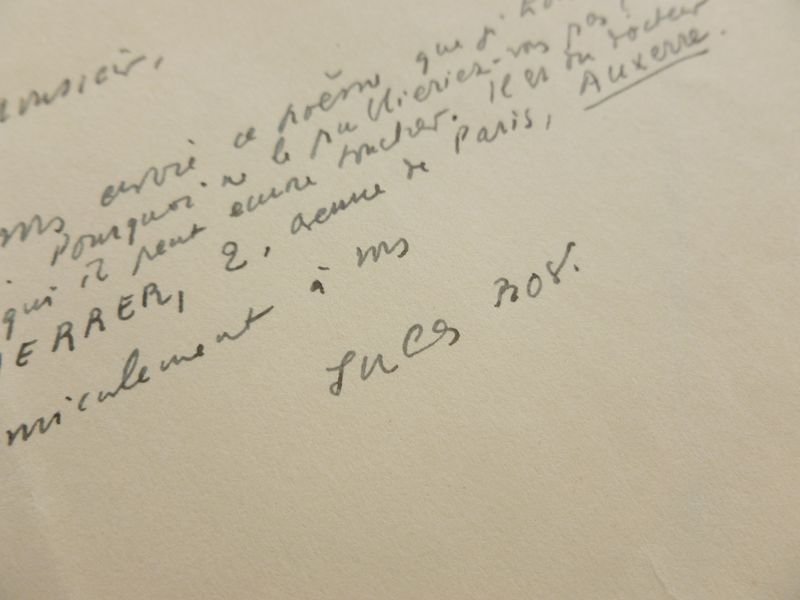 Monsieur,
envoie ce poème que j'
Pourquoi ne le publieriez-vous pas?
qui il peut encore toucher. Il est du docteur
ERRER, 2, avenue de Paris, Auxerre.
micalement à vous